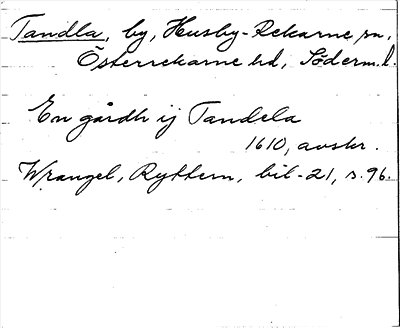 Tandla, by, Husby-Rekarne sn,
Österrekarne hd, Söderm.l.
En gårdh ij Tandela
1610, avskr.
Wrangel, Ryttern, bil-21, s.96.